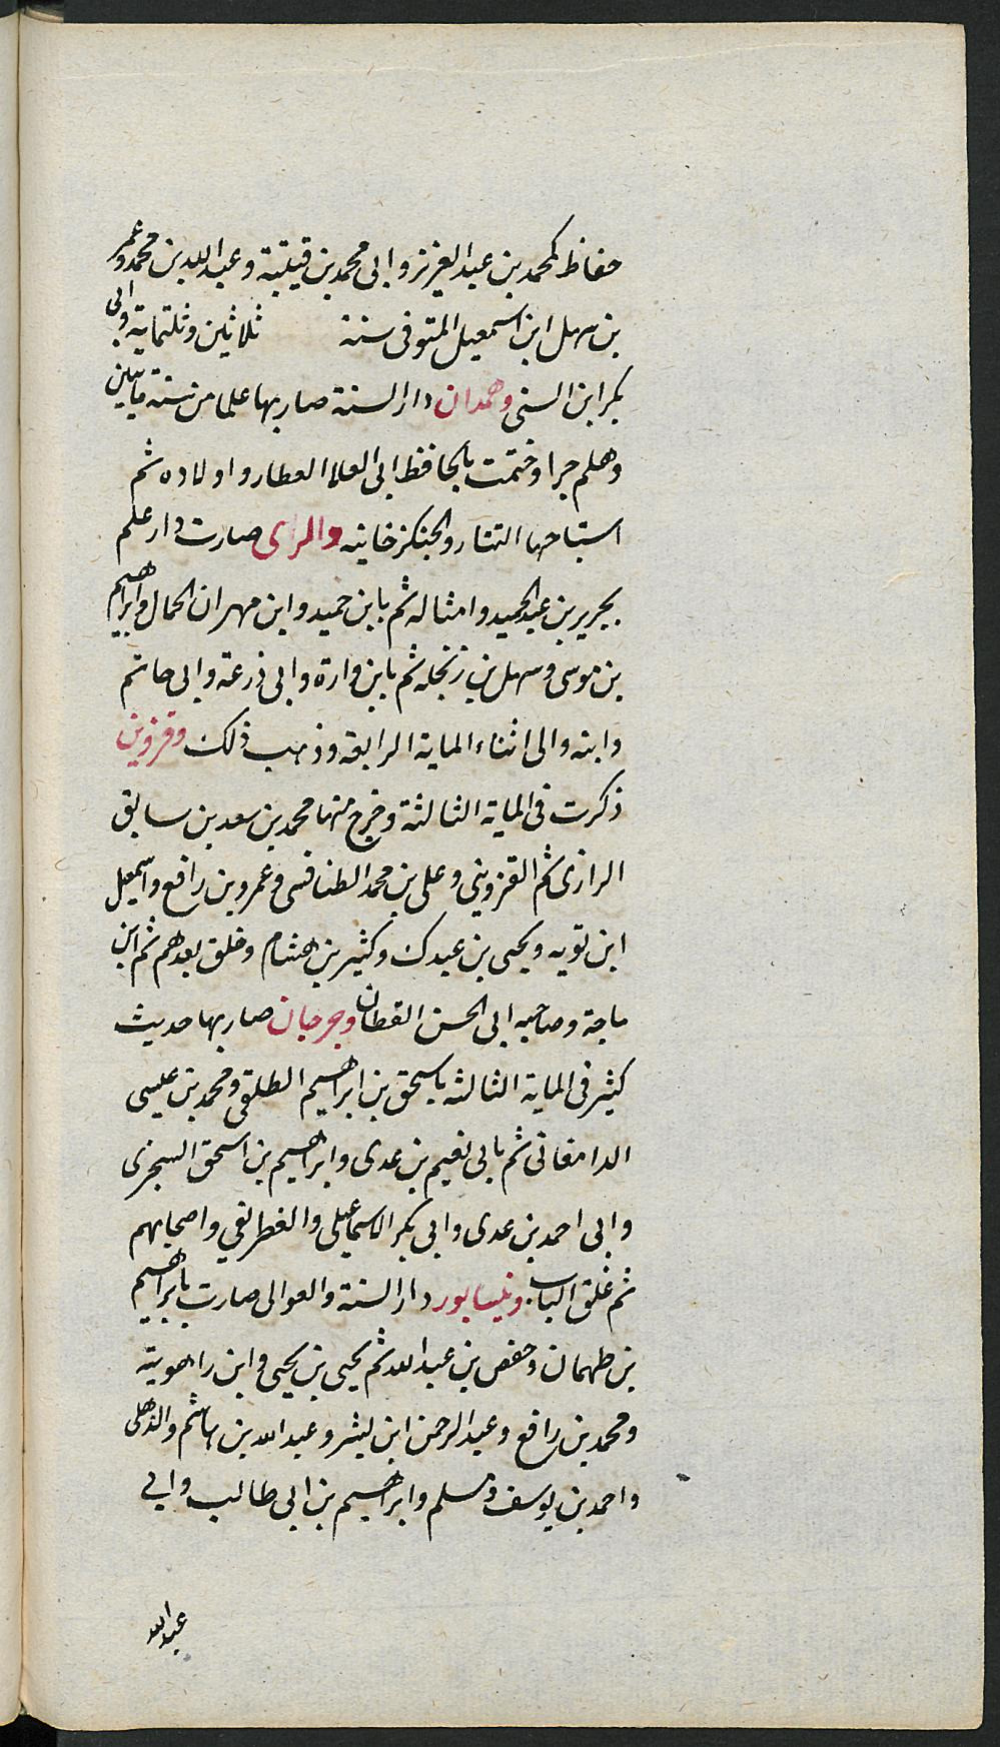 حفاظ كمحمد بن عبد العزيز وابى محمد بن قيتبة وعبد الله بن محمد وعمر
بن سهل ابن اسمعيل المتوفى سنة ثلاثين وثلتماية وابى
بكر ابن السنى وهمدان دار السنة صار بها علما من سنة مايتين
وهلم جرا وختمت بالحافظ ابى العلا العطار واولاده ثم
استباحها التتار والجنكزخانيه والرى صارت دار علم
بجرير بن عبد الحميد وامثاله ثم بابن حميد وابن مهران الحمال وابراهيم
بن موسى وسهل بن زنجله ثم بابن وارة وابى ذرعة وابى حاتم
وابنه والى اثناء الماية الرابعة وذهب ذلك وقزوين
ذكرت فى الماية الثالثة وخرج منها محمد بن سعد بن سابق
الرازى ثم القزوينى وعلى بن محمد الطنافسى وعمرو بن رافع واسمعيل
ابن توبه ويحيى بن عبدك وكثير بن هشام وخلق بعدهم ثم ابن
ماجة وصاحبه ابى الحسن القطان وجرجان صار بها حديث
كثير فى الماية الثالثه باسحق بن ابراهيم الطلقى ومحمد بن عيسى
الدامغانى ثم بابى نعيم بن عدى وابراهيم بن اسحق السجزى
وابى احمد بن عدى وابى بكر الاسماعيلى والغطريفي واصحابهم
ثم غلق الباب ونيسابور دار السنة والعوالى صارت بابراهيم
بن طهمان وحفص بن عبد الله ثم يحيى بن يحيى وابن راهوية
ومحمد بن رافع وعبد الرحمن ابن بشر وعبد الله بن هاشم والذهلى
واحمد بن يوسف ومسلم وابراهيم بن ابى طالب وابي
عبد الله